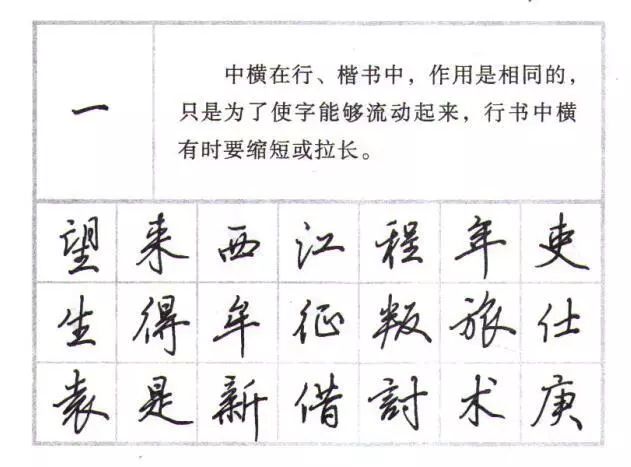 一
中横在行、楷书中，作用是相同的，
只是为了使字能够流动起来，行书中横
有时要缩短或拉长。
望 来 西 江 程 年 吏
生 得 牟 征 叛 旅 仕
袁 是 新 借 討 术 庚